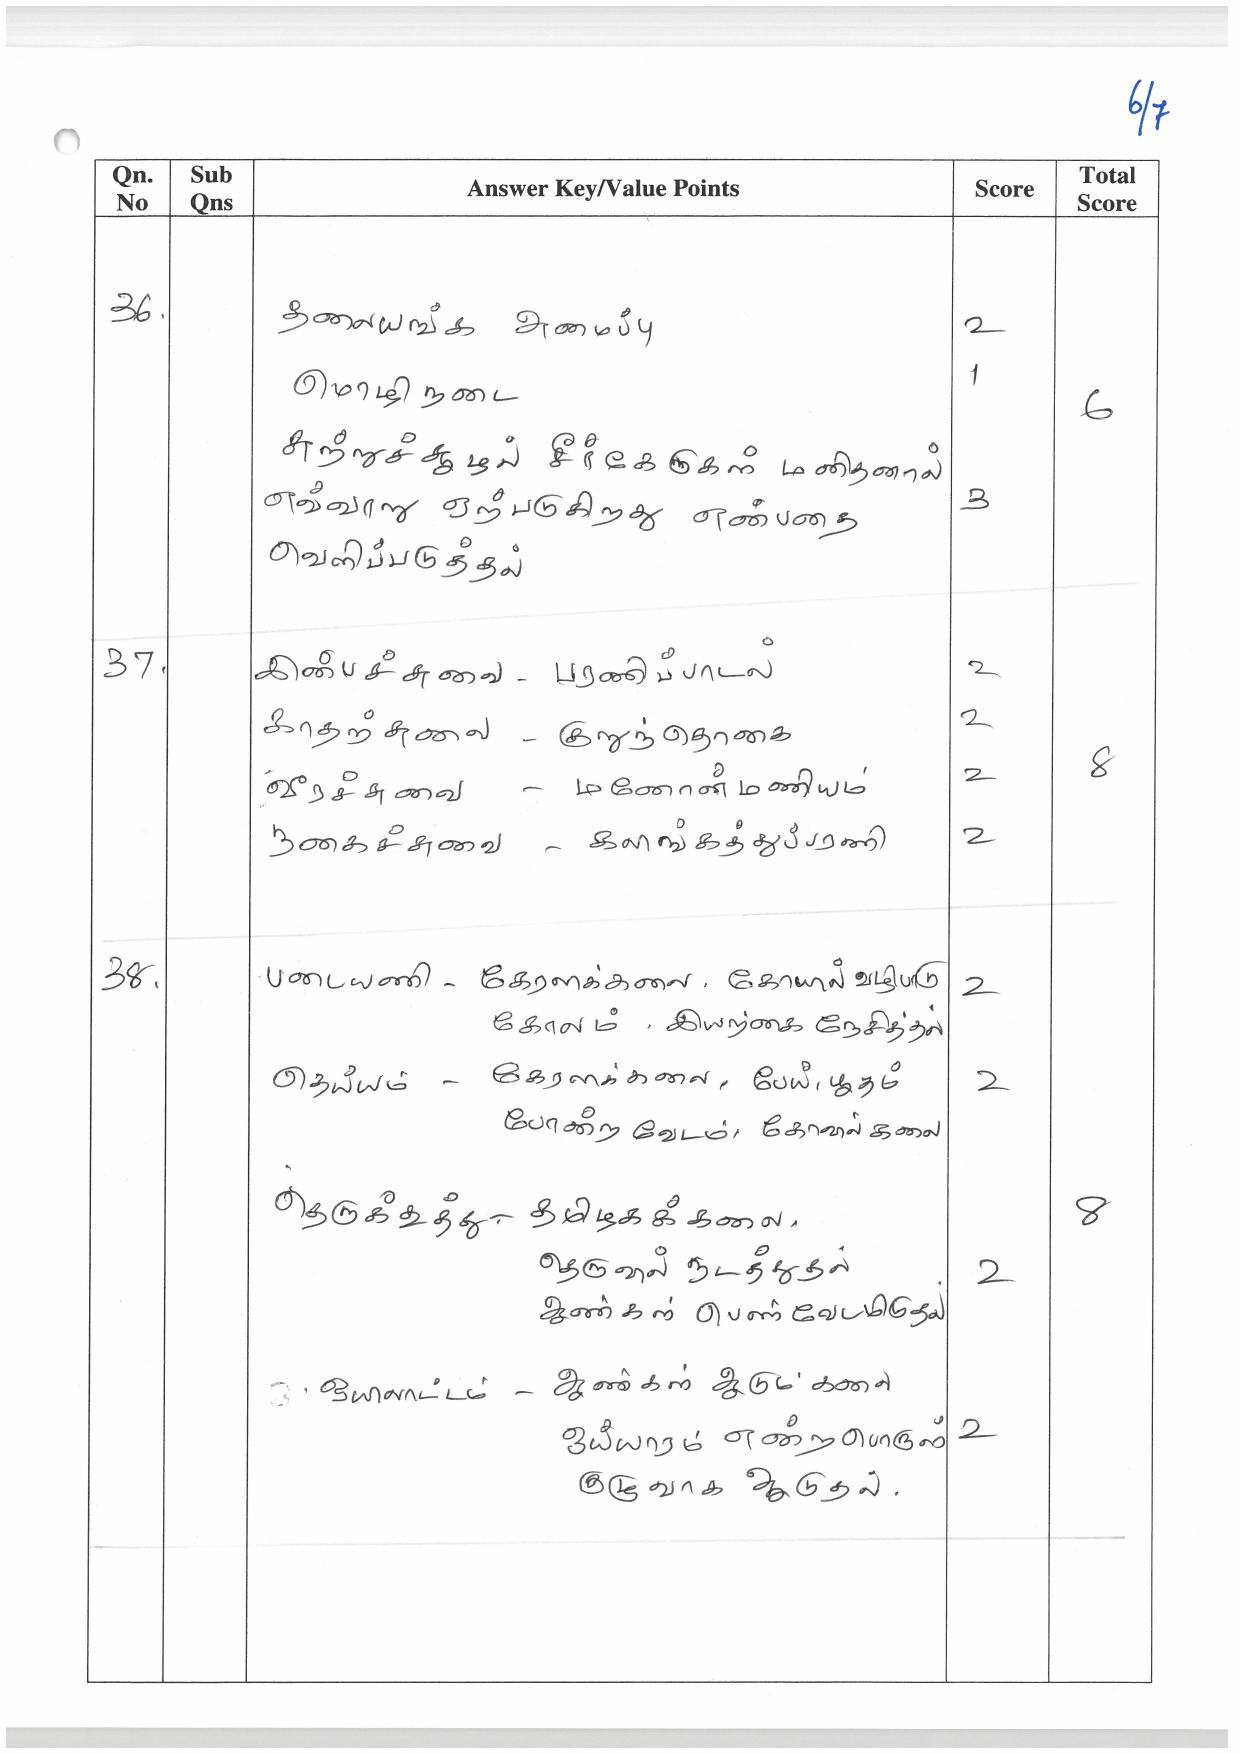 6/7
Qn. No Sub Qns Answer Key/Value Points Score Total Score
36. தலையங்க அமைப்பு 2
மொழிநடை 1
6
சுற்றுச்சூழல் சீர்கேடுகள் மனிதனால்
எவ்வாறு ஏற்படுகிறது என்பதை 3
வெளிப்படுத்தல்
37. இன்பச்சுவை - பரணிப்பாடல் 2
காதற்சுவை - குறுந்தொகை 2
வீரச்சுவை - மனோன்மணியம் 2 8
நகைச்சுவை - கலிங்கத்துப்பரணி 2
38. படையணி - கேரளக்கலை, கோயில் வழிபாடு 2
கோலம், இயற்கை நேசித்தல்
தெய்யம் - கேரளக்கலை, பேய், பூதம் 2
போன்ற வேடம், கோவில்கலை
தெருக்கூத்து - தமிழகக்கலை, 8
தெருவில் நடத்துதல் 2
ஆண்கள் பெண் வேடமிடுதல்
ஒயிலாட்டம் - ஆண்கள் ஆடும் கலை
ஒய்யாரம் என்ற பொருள் 2
குழுவாக ஆடுதல்.